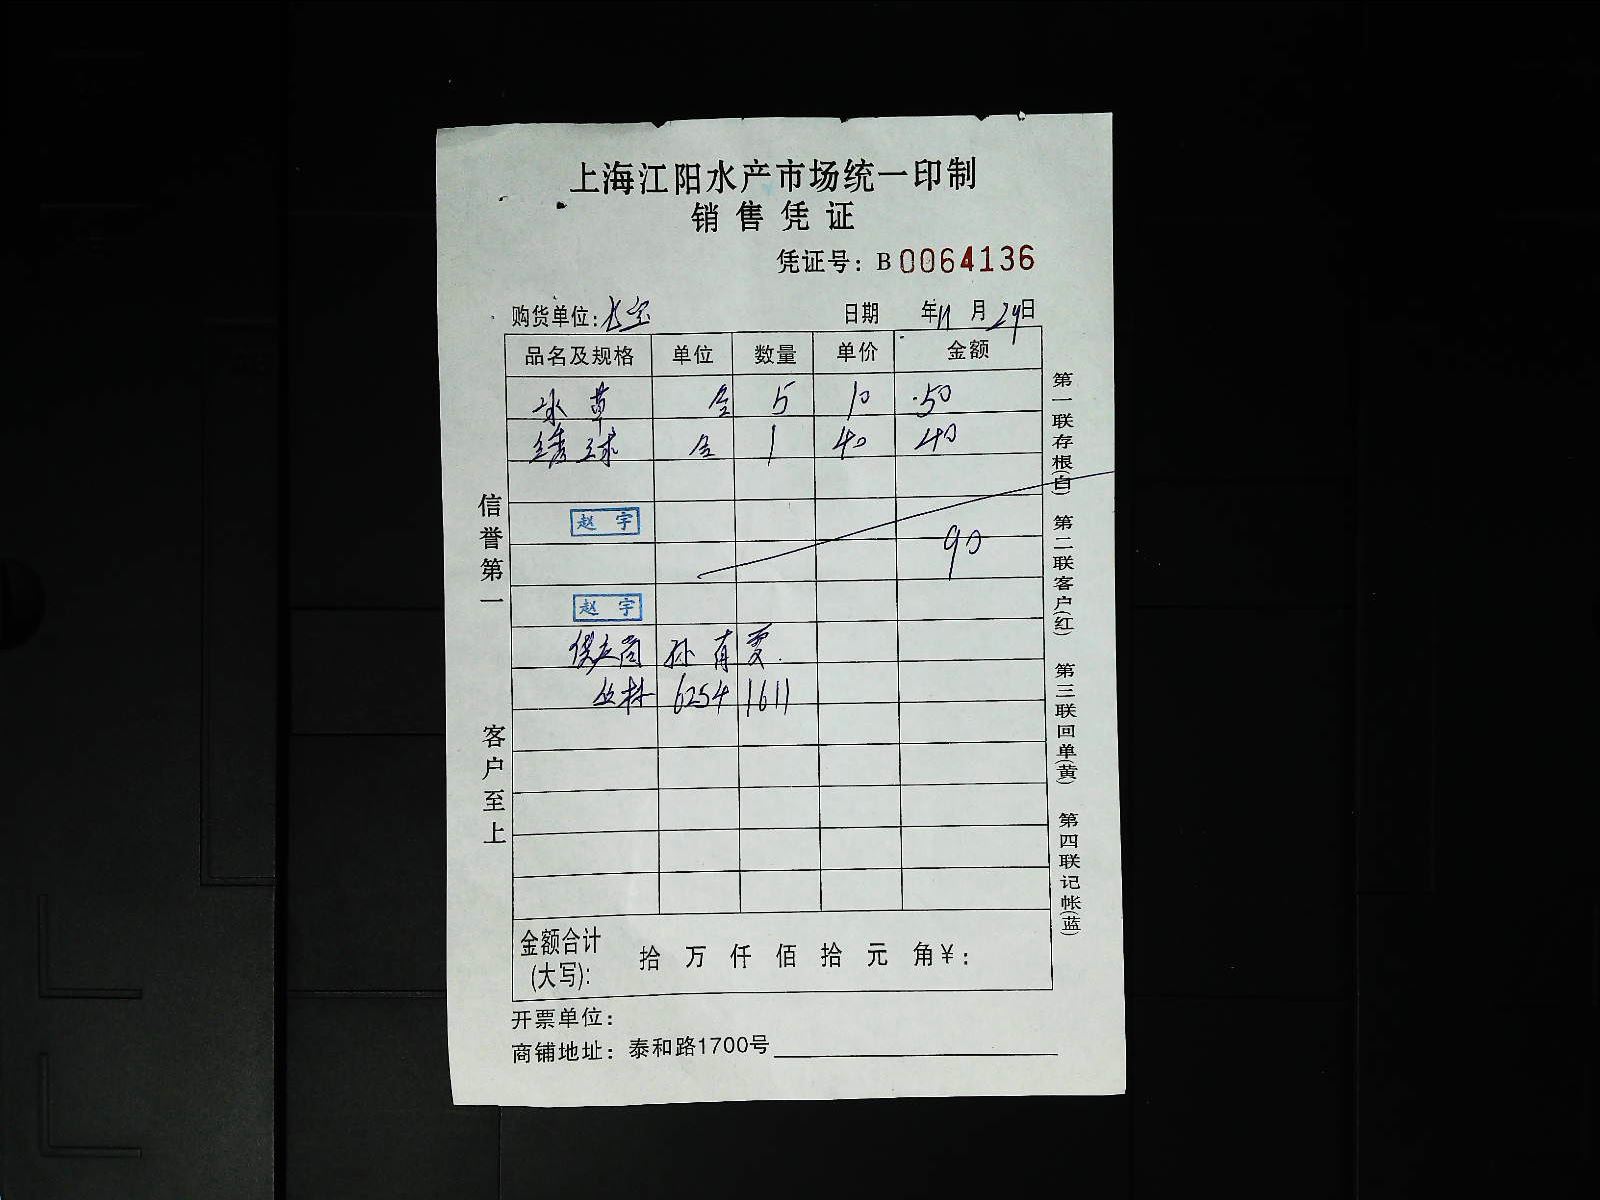 上海江阳水产市场统一印制
销售凭证
凭证号：B0064136
购货单位： 日期 年11月29日
品名及规格 单位 数量 单价 金额
冰草 盒 5 10 50
绣球 盒 1 40 40
赵宇
90
赵宇
供应商 孙有夏
丛林 6254 1611
金额合计(大写)： 拾 万 仟 佰 拾 元 角 ¥：
开票单位：
商铺地址：泰和路1700号
信誉第一
客户至上
第一联存根(白) 第二联客户(红) 第三联回单(黄) 第四联记帐(蓝)